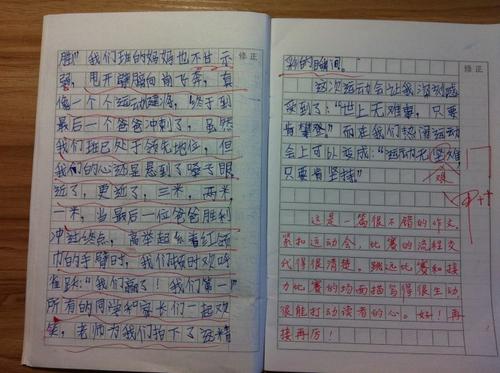 修正
胜!"我们班的妈妈也不甘示
弱,甩开臂膀向前飞奔,真
像一个个运动健将。终于到
最后一个爸爸冲刺了,虽然
我们班已处于领先地位,但
我们的心是悬到了嗓子眼
近了,更近了,三米,两米
一米,当最后一位爸爸胜利
冲过终点,高举起系着红领
巾的手臂时,我们顿时欢呼
雀跃:"我们赢了!我们第一"
所有的同学和家长们一起欢
笑,老师为我们拍下了这精
修正
彩的瞬间。
这次运动会让我深刻感
受到了:"世上无难事,只要
肯攀登"而在我们运动
会上可以变成:"运动无坚难
只要肯坚持"
艰
这是一篇很不错的作文,
紧扣运动会,比赛的流程交
代得很清楚。跳远比赛和接
力比赛的场面描写得很生动
很能打动读者的心。好!再
接再厉!